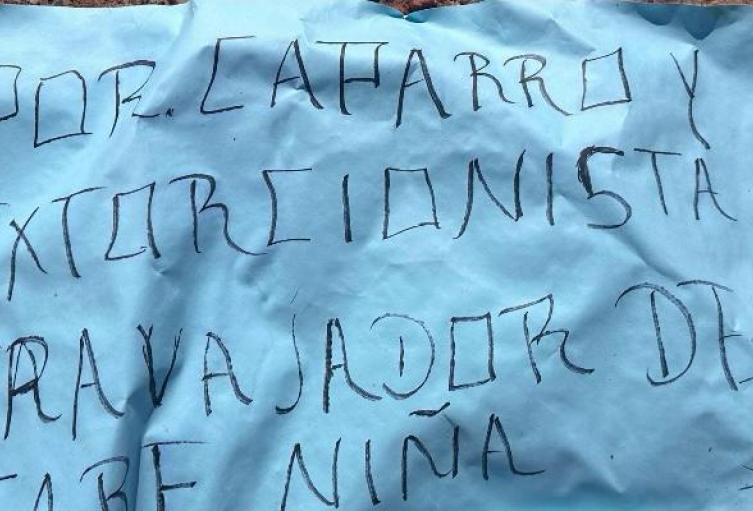 POR. CAFARRO Y
EXTORCIONISTA
RAVAJADOR DE
NIÑA